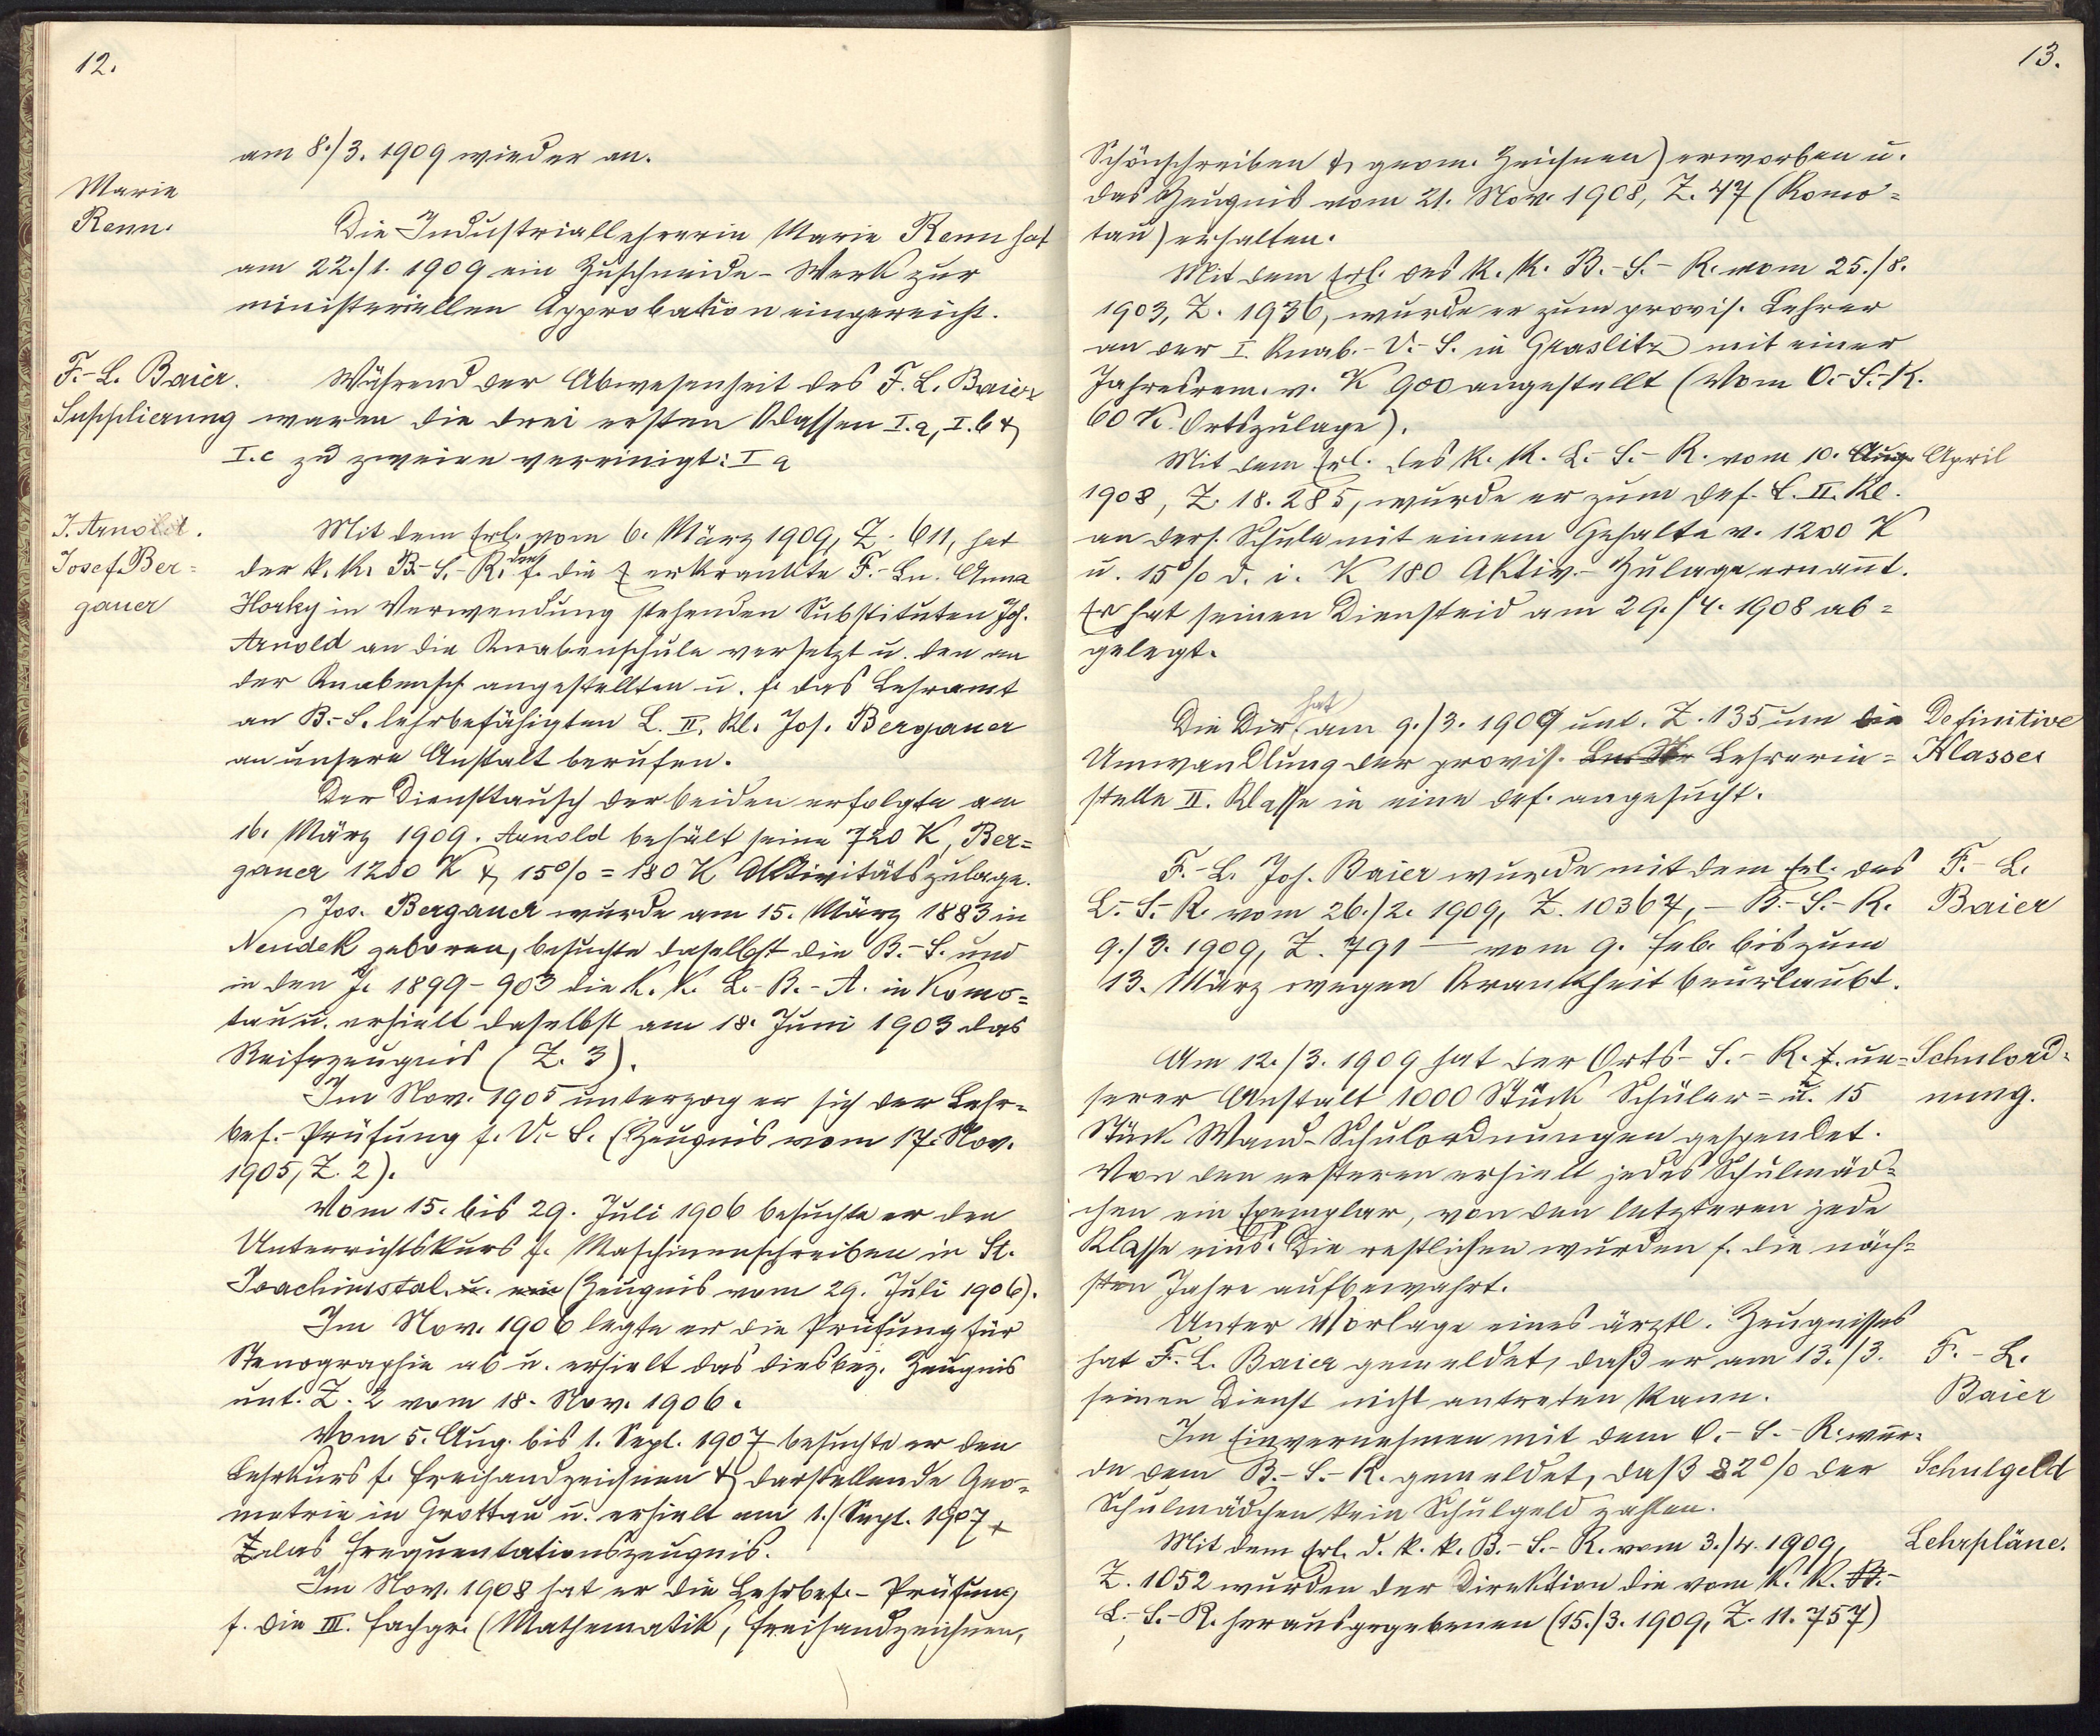 12.
am 8./3. 1909 wieder an.
Marie
Renn.
Die Industriallehrerin Marie Renn hat
am 22./1. 1909 ein Zuschneide-Werk zur
ministeriellen Approbation eingereicht.
F.-L. Baier.
Supplierung
Während der Abwesenheit des F. L. Baier
waren die drei ersten Klassen I.a, I.b &
I.c zu zweien vereinigt: I a
J. Arnold.
Josef Ber=
gauer
Mit dem Erl. vom 6. März 1909, Z. 611, hat
der k. k. B.-S.-R. den f. die erkrankte F.-Ln. Anna
Horky in Verwendung stehenden Substituten Joh.
Arnold an die Knabenschule versetzt u. den an
der Knabensch. angestellten u. f. das Lehramt
an B.-S. lehrbefähigten L. II. Kl. Jos. Bergauer
an unsere Anstalt berufen.
Der Diensttausch der beiden erfolgte am
16. März 1909. Arnold behält seine 720 K, Ber=
gauer 1200 K & 15% = 180 K Aktivitätszulage.
Jos. Bergauer wurde am 15. März 1883 in
Neudek geboren, besuchte daselbst die B.-S. und
in den J. 1899-903 die k. k. L.-B.-A. in Komo=
tau u. erhielt daselbst am 18. Juni 1903 das
Reifezeugnis (Z. 3).
Im Nov. 1905 unterzog er sich der Lehr=
bef.-Prüfung f. V.-S. (Zeugnis vom 17. Nov.
1905, Z. 2).
Vom 15. bis 29. Juli 1906 besuchte er den
Unterrichtskurs f. Maschinenschreiben in St.
Joachimstal u. ein (Zeugnis vom 29. Juli 1906).
Im Nov. 1906 legte er die Prüfung für
Stenographie ab u. erhielt das diesbez. Zeugnis
unt. Z. 2 vom 18. Nov. 1906.
Vom 5. Aug. bis 1. Sept. 1907 besuchte er den
Lehrkurs f. Freihandzeichnen & darstellende Geo=
metrie in Grottau u. erhielt am 1./Sept. 1907
Z das Frequentationszeugnis.
Im Nov. 1908 hat er die Lehrbef.-Prüfung
f. die III. Fachgr. (Mathematik, Freihandzeichnen,
13.
Schönschreiben & geom. Zeichnen) erworben u.
das Zeugnis vom 21. Nov. 1908, Z. 47 (Komo=
tau) erhalten.
Mit dem Erl. des k. k. B.-S.-R. vom 25./8.
1903, Z. 1936, wurde er zum provis. Lehrer
an der I. Knab.-V.-S. in Graslitz mit einer
Jahresrem. v. K 900 angestellt (Vom O.-S.-R.
60 K Ortszulage).
Mit dem Erl. des k. k. L.-S.-R. vom 10. Aug. April
1908, Z. 18.285, wurde er zum def. L. II. Kl.
an ders. Schule mit einem Gehalte v. 1200 K
u. 15% d. i. K 180 Aktiv.-Zulage ernannt.
Er hat seinen Diensteid am 29./4. 1908 ab=
gelegt.
Die Dir. hat am 9./3. 1909 unt. Z. 135 um die
Umwandlung der provis. Lehrerin=
stelle II. Klasse in eine def. angesucht.
Definitive
Klasse
F.-L. Joh. Baier wurde mit dem Erl. des
L.-S.-R. vom 26./2. 1909, Z. 10367, – B.-S.-R.
9./3. 1909, Z. 791 – vom 9. Feb. bis zum
13. März wegen Krankheit beurlaubt.
F.-L.
Baier
Am 12./3. 1909 hat der Orts-S.-R. f. un=
serer Anstalt 1000 Stück Schüler= u. 15
Stück Wand-Schulordnungen gespendet.
Von den ersteren erhielt jedes Schulmäd=
chen ein Exemplar, von den letzteren jede
Klasse eins. Die restlichen wurden f. die näch=
sten Jahre aufbewahrt.
Schulord=
nung.
Unter Vorlage eines ärztl. Zeugnisses
hat F.-L. Baier gemeldet, daß er am 13./3.
seinen Dienst nicht antreten kann.
F.-L.
Baier
Im Einvernehmen mit dem O.-S.-R. wur=
de dem B.-S.-R. gemeldet, daß 82% der
Schulmädchen kein Schulgeld zahlen.
Schulgeld
Mit dem Erl. d. k. k. B.-S.-R. vom 3./4. 1909,
Z. 1052 wurden der Direktion die vom k. k.
L.-S.-R. herausgegebenen (15./3. 1909, Z. 11.757)
Lehrpläne.